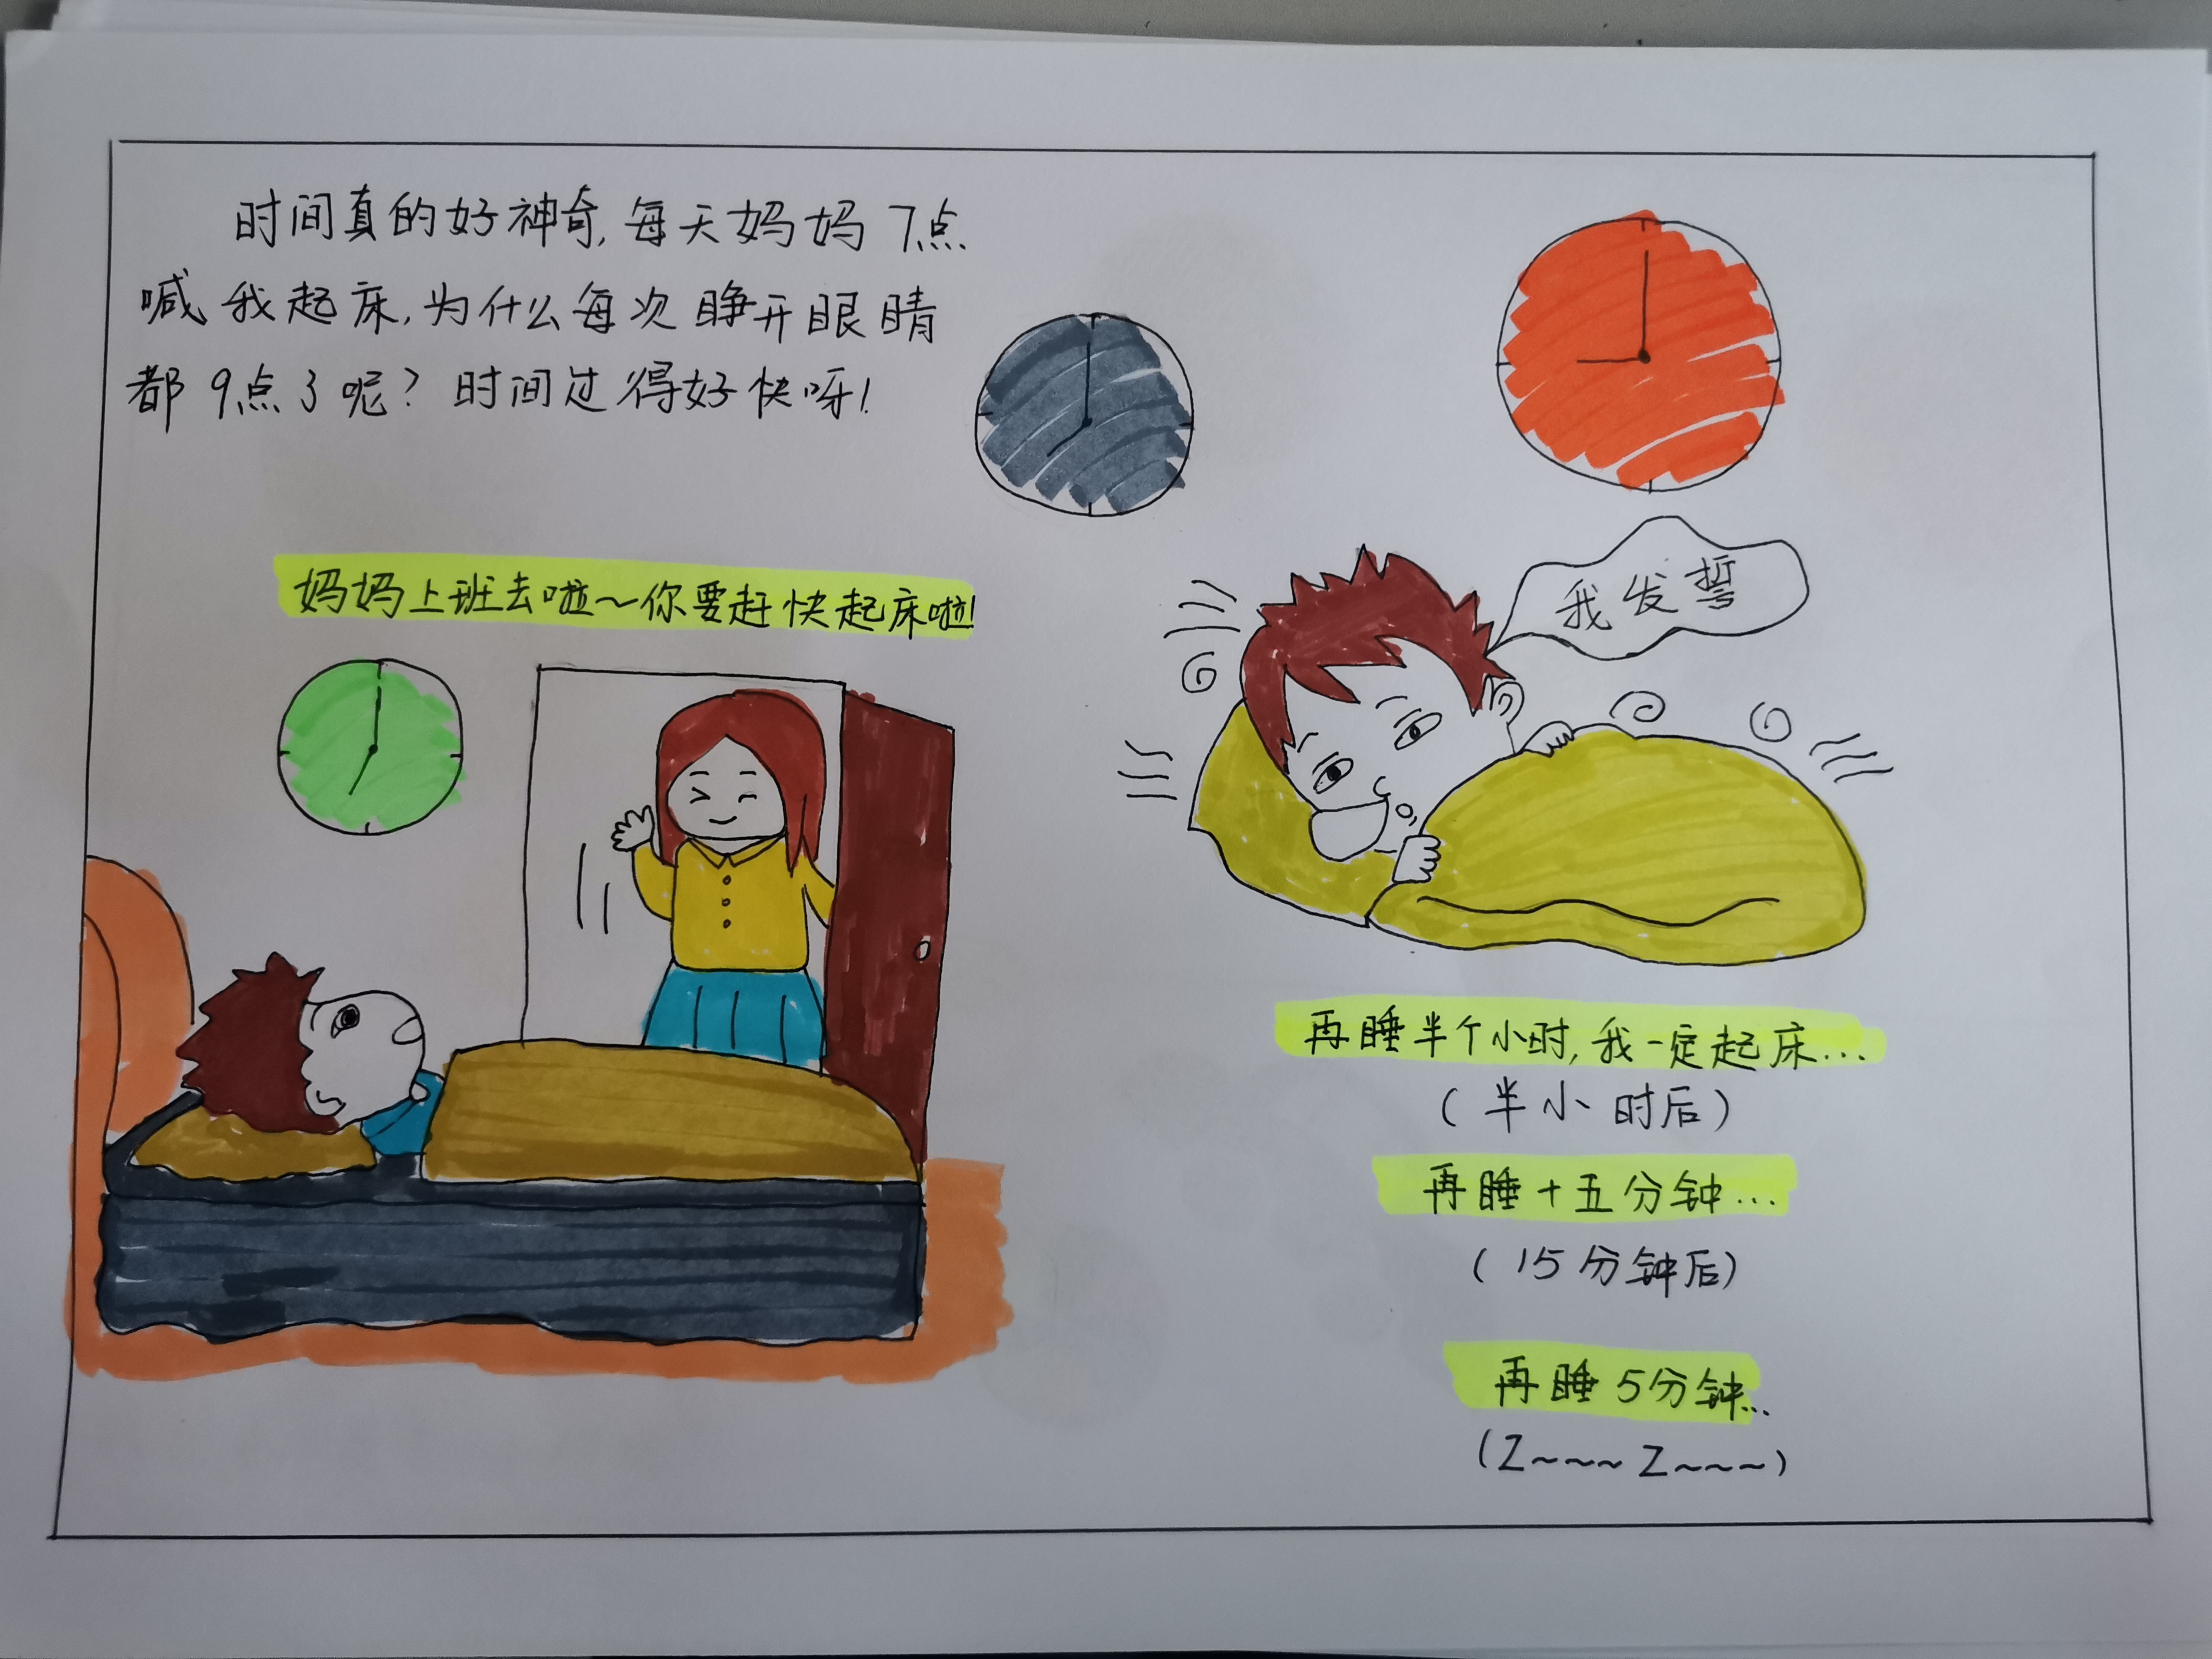 时间真的好神奇,每天妈妈7点
喊我起床,为什么每次睁开眼睛
都9点了呢?时间过得好快呀!
妈妈上班去啦~你要赶快起床啦!
我发誓
再睡半个小时,我一定起床...
(半小时后)
再睡十五分钟...
(15分钟后)
再睡5分钟...
(Z~~~Z~~~)